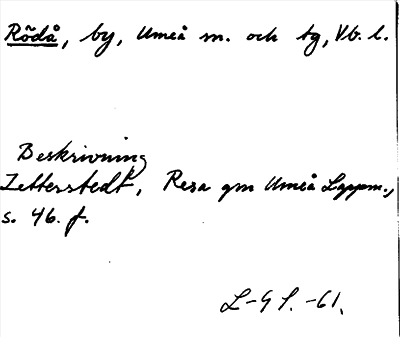 Rödå, by, Umeå sn. och tg, Vb. l.
Beskrivning
Zetterstedt, Resa gm Umeå Lappm.,
s. 46. f.
L-G S. -61.